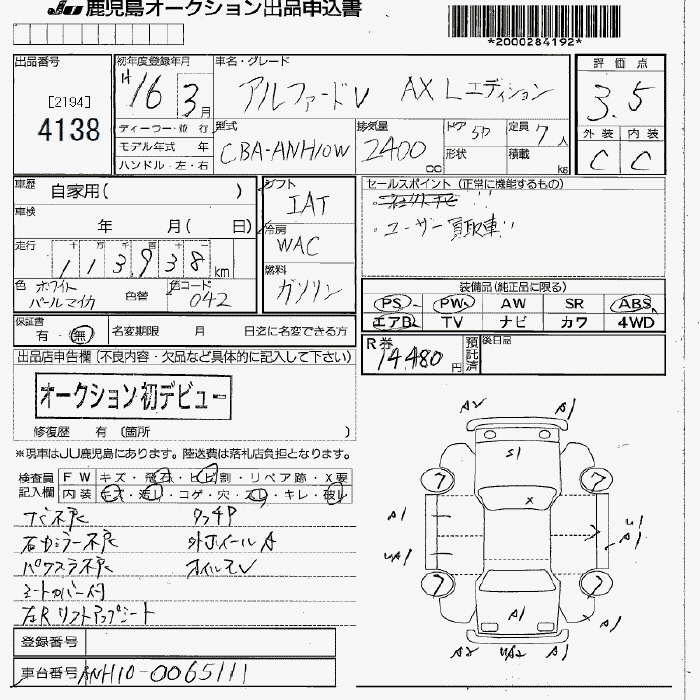 JU 鹿児島オークション出品申込書
*2000284192*
出品番号
[2194]
4138
初年度登録年月
H16 3月
車名・グレード
アルファードV AX Lエディション
評価点
3.5
外装 内装
C C
ディーラー・並行
モデル年式 年
ハンドル・左・右
型式
CBA-ANH10W
排気量
2400 cc
ドア 5D
定員 7人
形状
積載 kg
車歴 自家用( )
車検 年 月( 日)
走行
113938 km
色 ホワイトパールマイカ
色替
色コード 042
シフト
IAT
冷房
WAC
燃料
ガソリン
セールスポイント (正常に機能するもの)
・ユーザー買取車!!
装備品(純正品に限る)
PS PW AW SR ABS
エアB TV ナビ カワ 4WD
保証書
有・無
名変期限 月 日迄に名変できる方
R券 14,480円
預託済
後日品
出品店申告欄(不良内容・欠品など具体的に記入して下さい)
オークション初デビュー
修復歴 有 (箇所 )
※現車はJU鹿児島にあります。陸送費は落札店負担となります。
検査員記入欄
FW キズ・飛石・ヒビ割・リペア跡・X要
内装 キズ・汚レ・コゲ・穴・スレ・キレ・破レ
ナビ不良
石カラー不良 外Jホイール A
パワスラ不良
シートカバー付
左Rリフトアップシート
登録番号
車台番号 ANH10-0065111
A2 A1
S1
7 7
X
A1 U1
A1
UA1
7 7
A1
A1
A2 UA2 A1